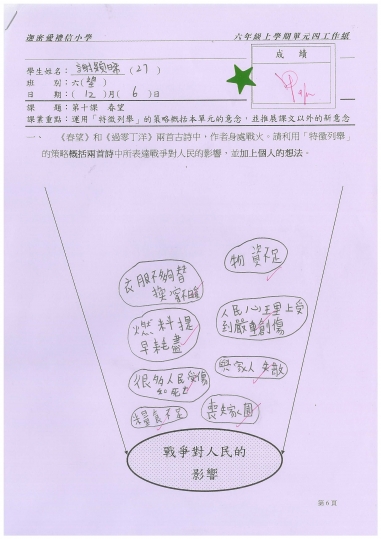 迦密愛禮信小學 六年級上學期單元四工作紙
成績
學生姓名：謝穎曈 (27)
班別：六(望)
日期：(12)月(6)日
課題：第十課 春望
課業重點：運用「特徵列舉」的策略概括本單元的意念，並推展課文以外的新意念
一、 《春望》和《過零丁洋》兩首古詩中，作者身處戰火。請利用「特徵列舉」
的策略概括兩首詩中所表達戰爭對人民的影響，並加上個人的想法。
物資不足
衣服不夠替
換
人民心理上受
到嚴重創傷
燃料提
早耗盡
與家人失散
很多人民受傷
如死亡
糧食不足
喪失家園
戰爭對人民的
影響
第6頁